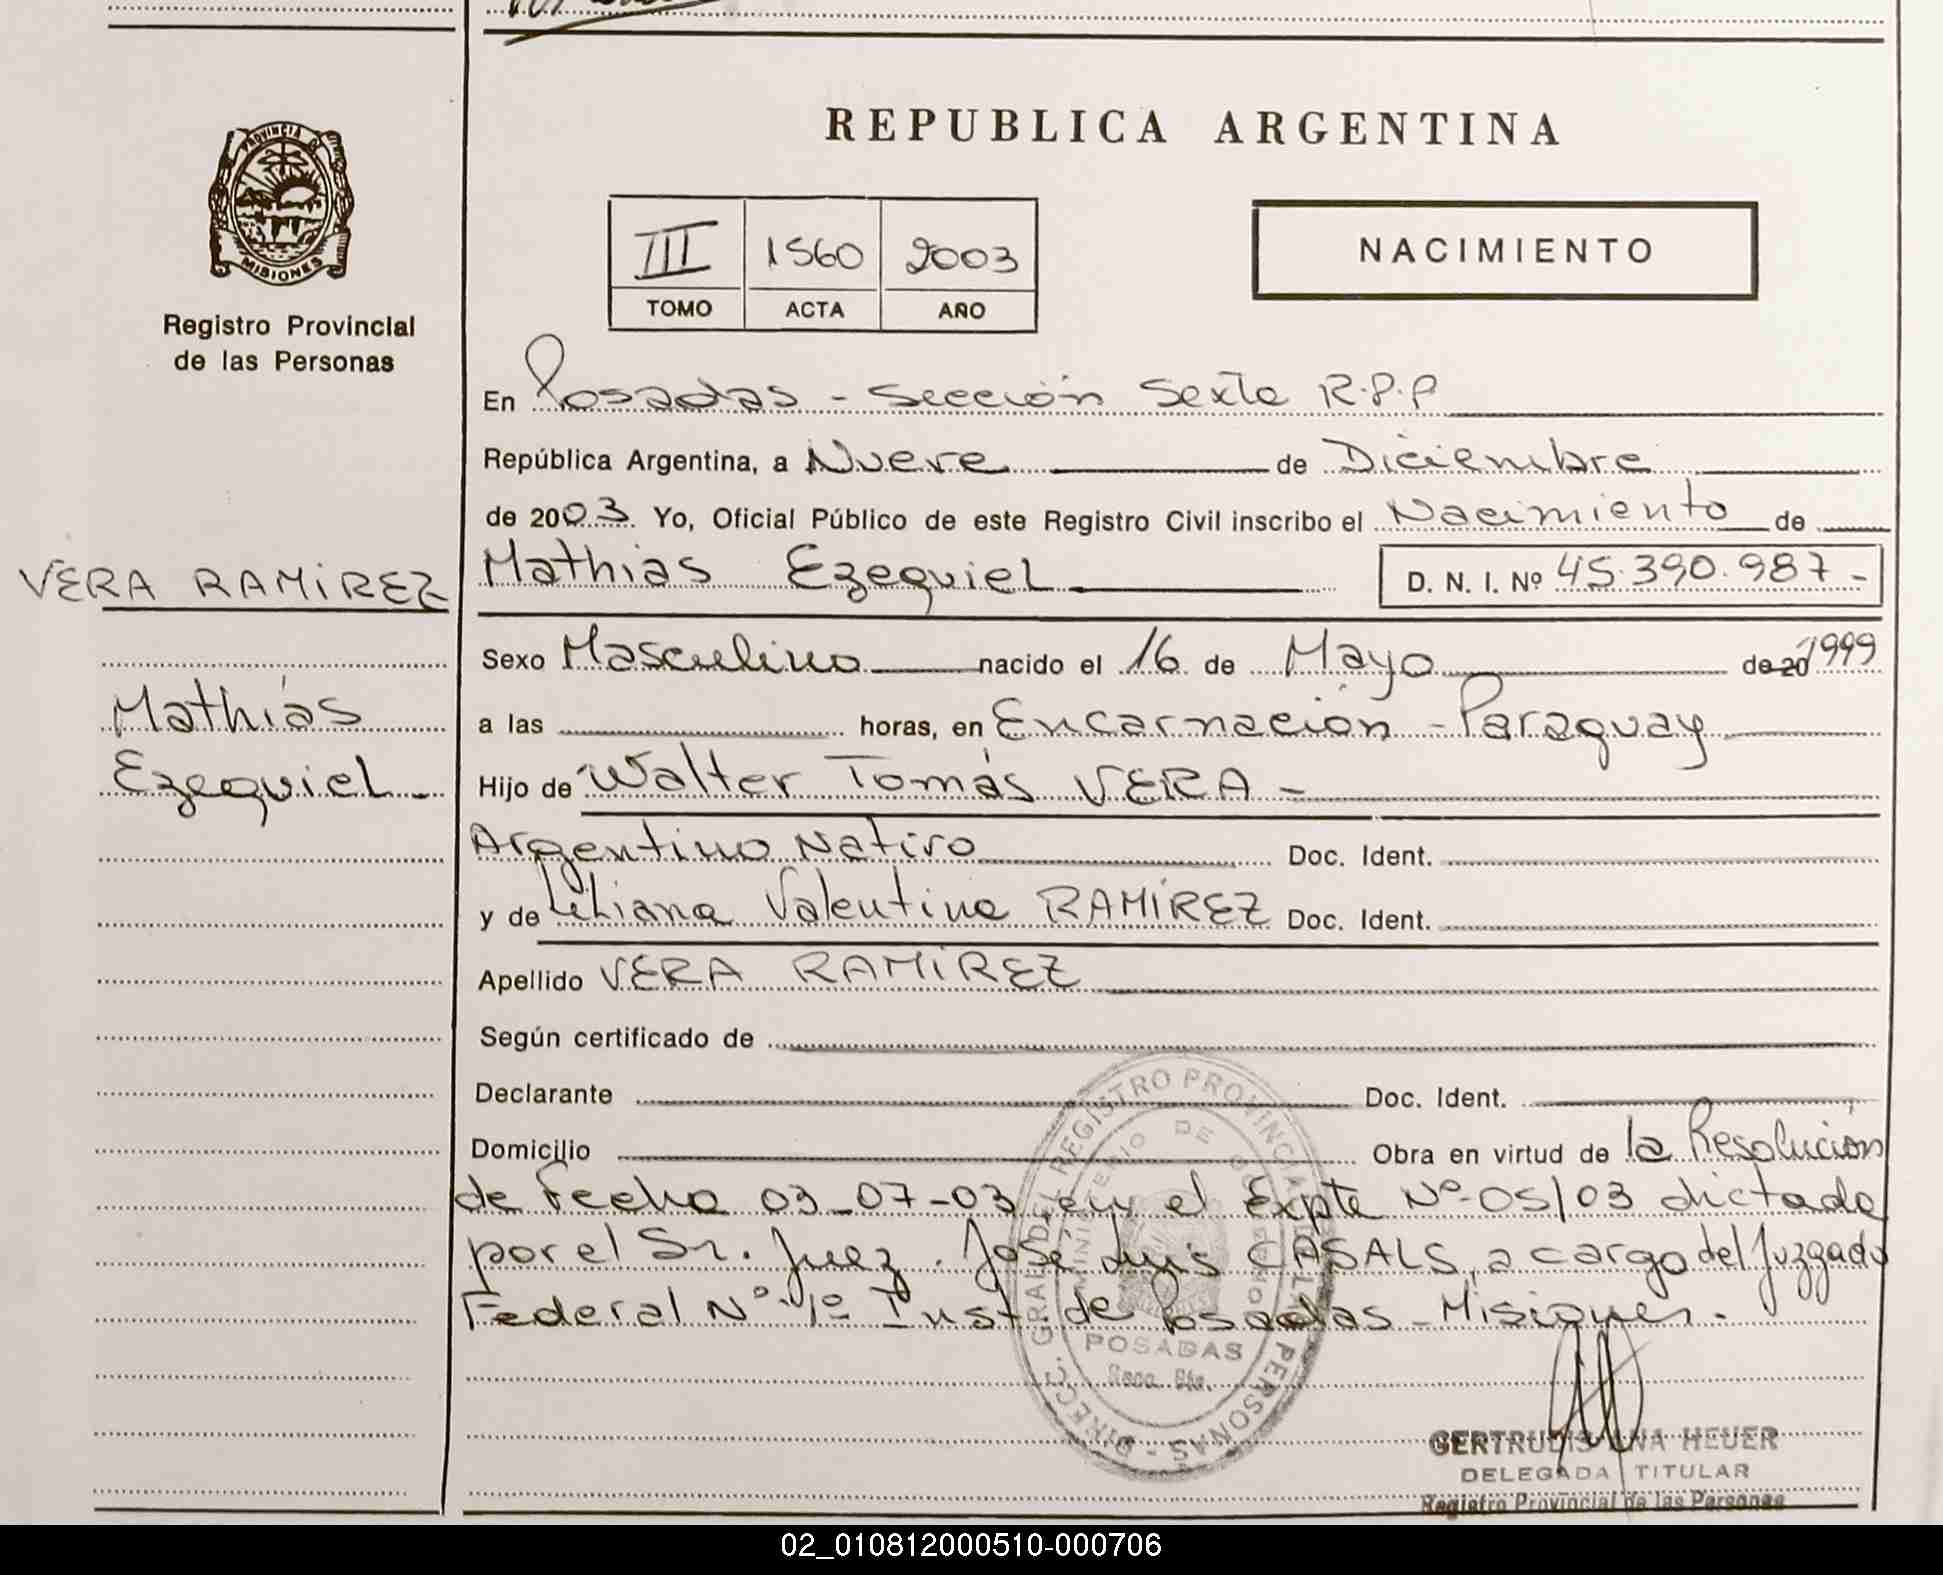 REPUBLICA ARGENTINA
PROVINCIA DE
MISIONES
Registro Provincial
de las Personas
III 1560 2003
TOMO ACTA AÑO
NACIMIENTO
En Posadas - Sección Sexta R.P.P
República Argentina, a Nueve de Diciembre
de 2003. Yo, Oficial Público de este Registro Civil inscribo el Nacimiento de
VERA RAMÍREZ
Mathias Ezequiel
D. N. I. Nº 45.390.987-
Sexo Masculino nacido el 16 de Mayo de 20 1999
Mathías
Ezequiel-
a las horas, en Encarnación - Paraguay
Hijo de Walter Tomás VERA -
Argentino Nativo Doc. Ident.
y de Liliana Valentina RAMÍREZ Doc. Ident.
Apellido VERA RAMÍREZ
Según certificado de
Declarante Doc. Ident.
Domicilio Obra en virtud de la Resolución
de Fecha 03-07-03 en el Expte Nº 05/03 dictada
por el Sr. Juez. José Luis CASALS, a cargo del Juzgado
Federal Nº 1º Inst. de Posadas - Misiones.
DIREC. GRAL DEL REGISTRO PROVINCIAL PERSONAS
MINISTERIO DE
POSADAS
GERTRUDIS ANA HEUER
DELEGADA TITULAR
Registro Provincial de las Personas
02_010812000510-000706